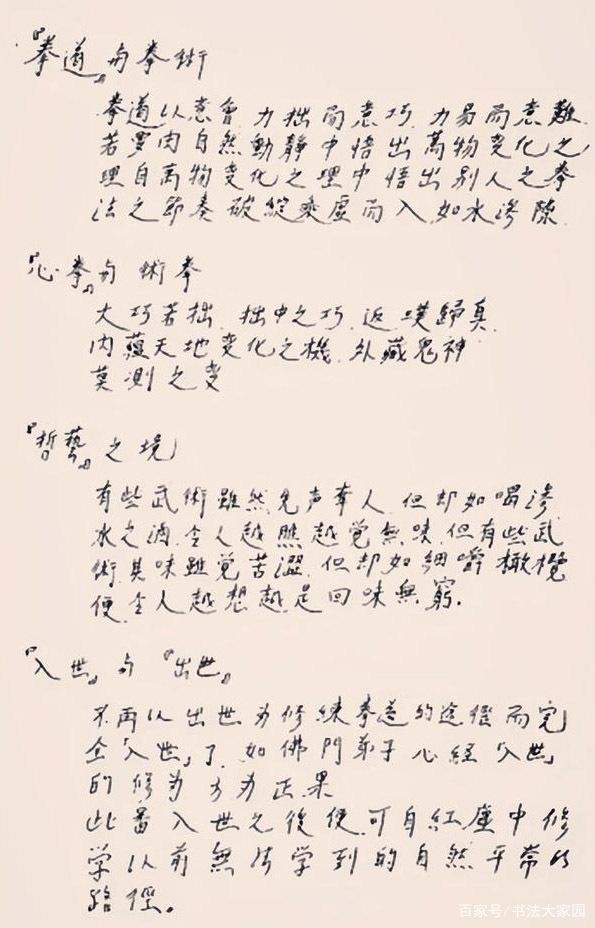 『拳道』与拳術
拳道以意會 力拙而意巧 力易而意難
若要由自然動靜中悟出萬物变化之
理自萬物变化之理中悟出別人之拳
法之節奏破綻乘虛而入 如水滲隙
『心拳』与術拳
大巧若拙 拙中之巧 返璞歸真
內蘊天地变化之機 外藏鬼神
莫測之变
『哲藝』之境
有些武術雖然先声奪人 但却如喝滲
水之酒 令人越𦧲越覚無味 但有些武
術其味雖覚苦澀 但却如細嚼橄欖
便令人越想越是回味無窮.
『入世』与『出世』
不再以出世为修練拳道的途徑而完
全「入世」了 如佛門弟子 心經「入世」
的修为 方为正果
此番入世之後便可自紅塵中修
学以前無法学到的自然平常的
路徑。
百家号/书法大家园